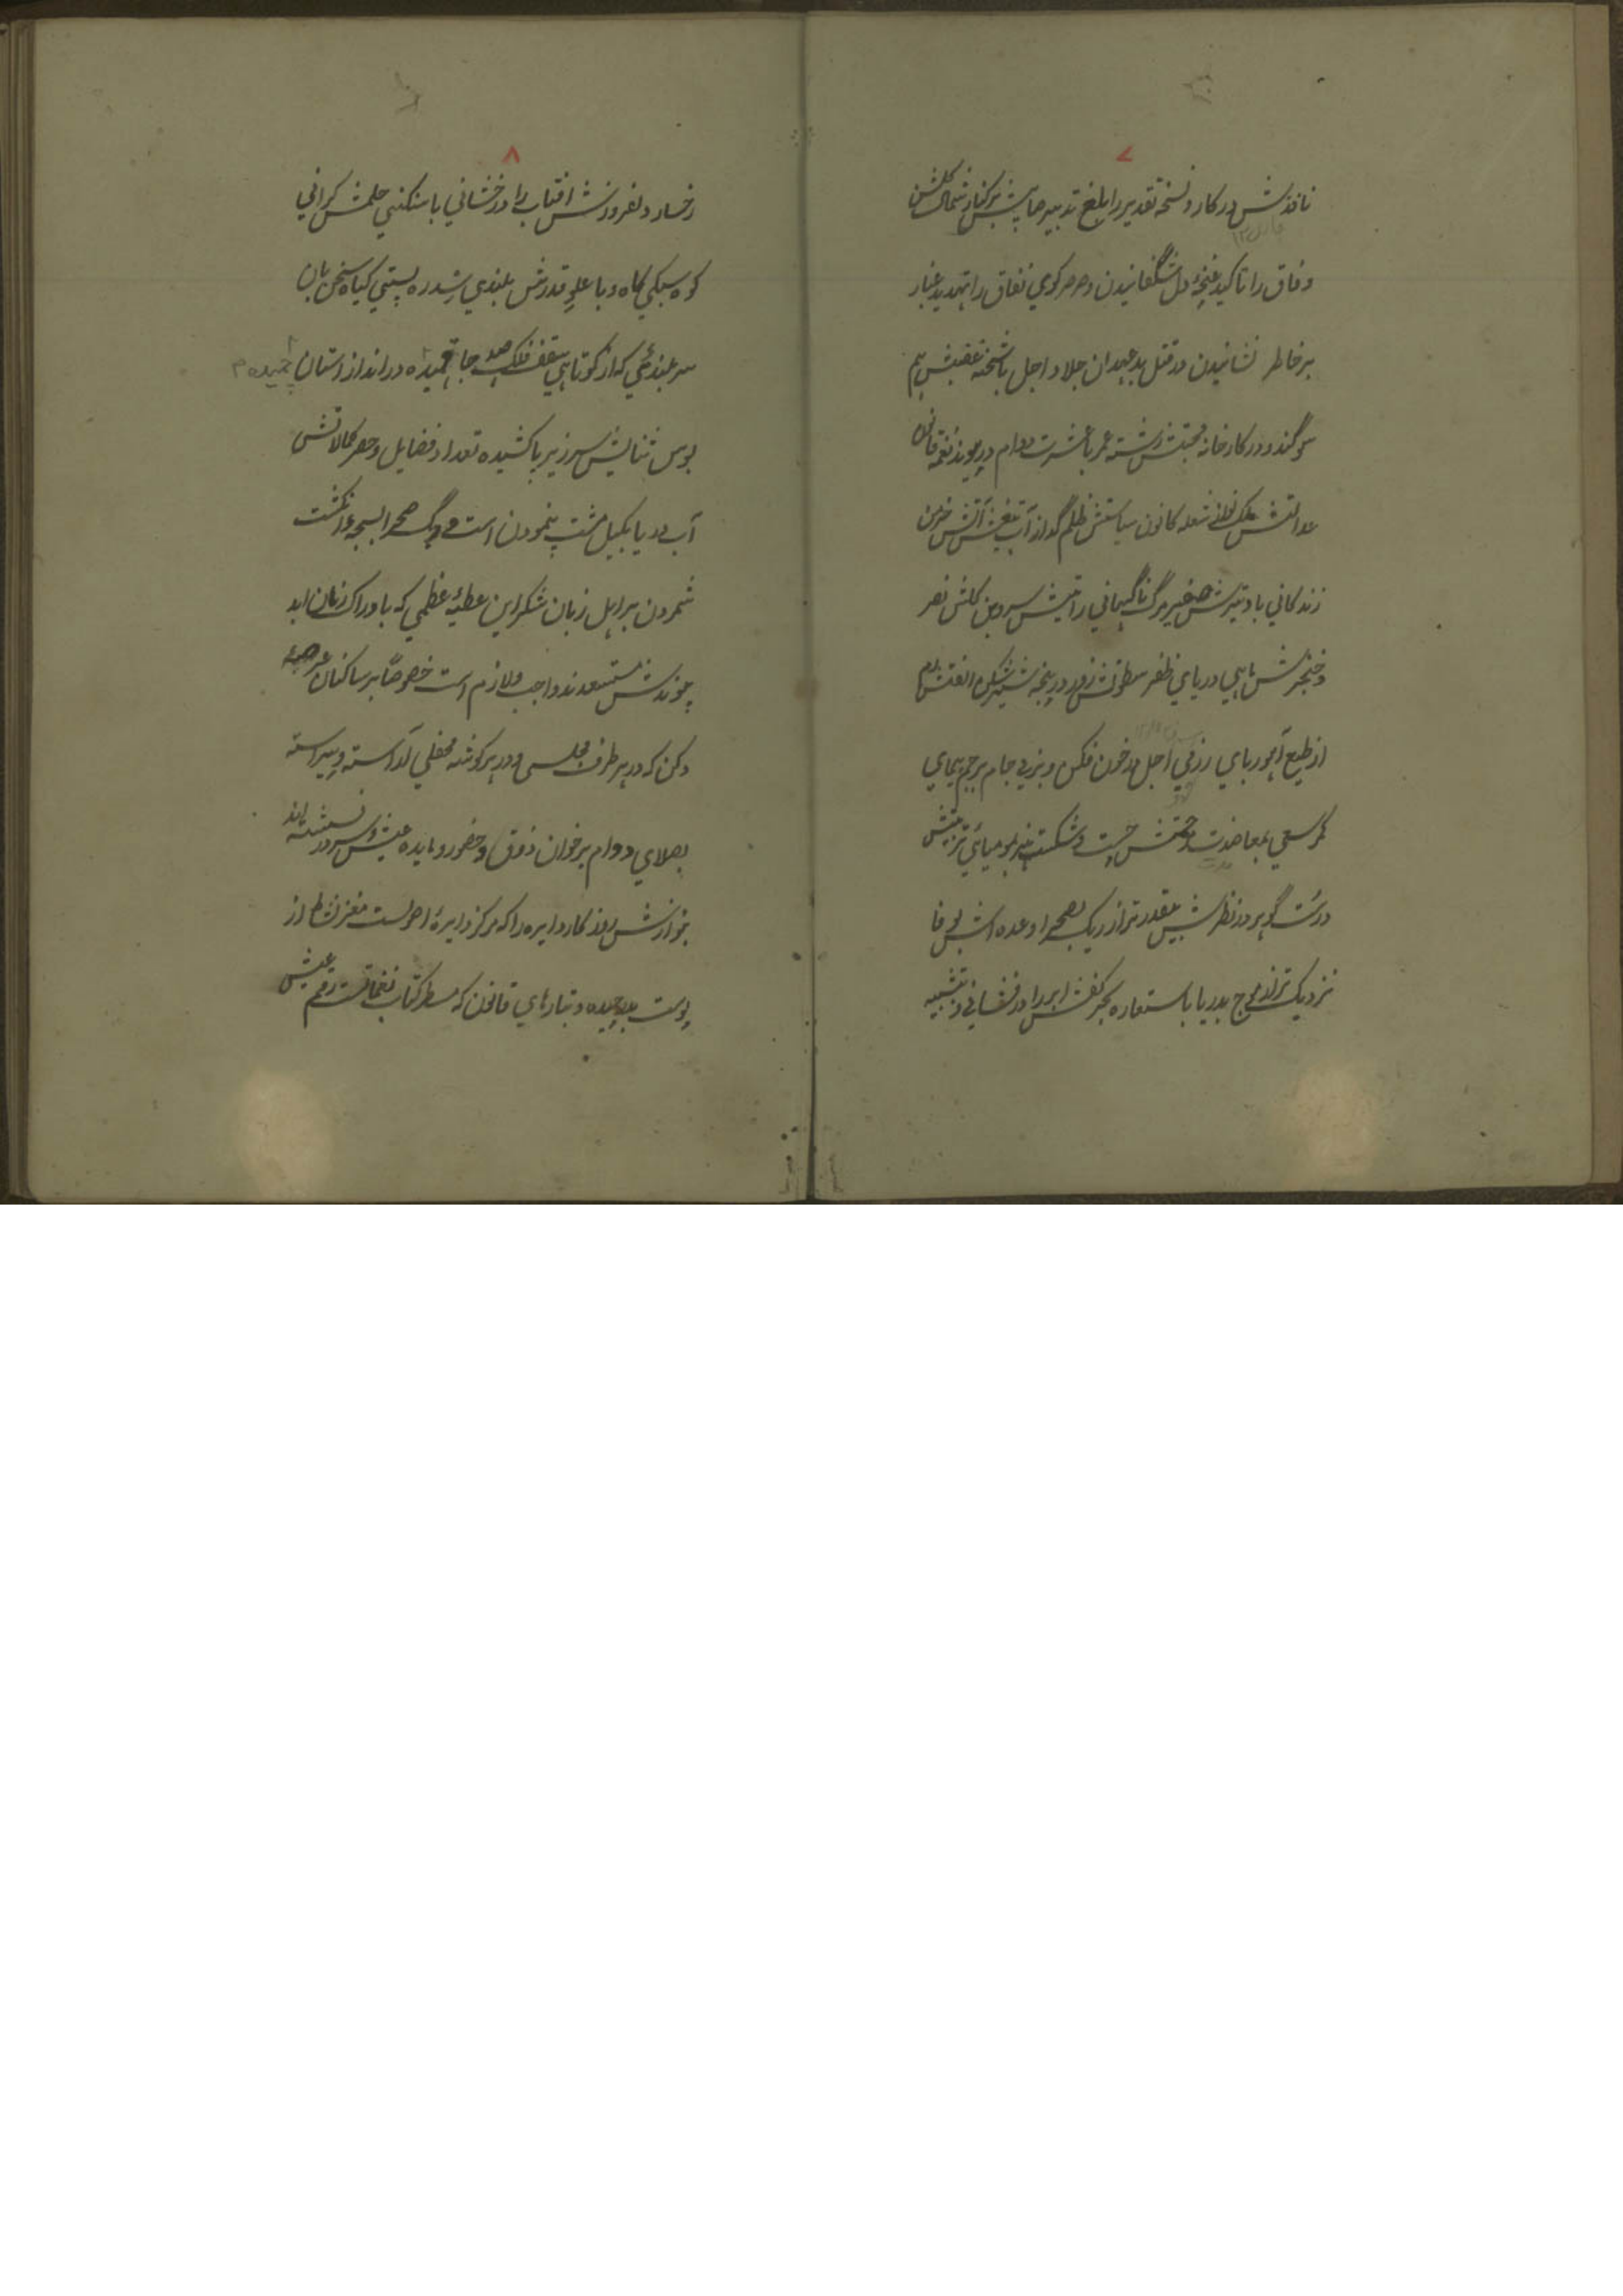 ۷
نافذش در کار و نسخهٔ تقدیر را بلیغ تدبیر صایبش برکنار شمال گلشن
وفاق را تاکید غنچهٔ دل شگفانیدن و صرصر کوی نفاق را تهدید غبار
بر خاطر نشانیدن در قتل بدعهدان جلاد اجل با شحنهٔ غضبش هم
سوگند و در کارخانهٔ محبتش رشتهٔ عمر با عشرت دوام در پیوند نغمه قانون
عدالتش ملک نواز شعله کانون سیاستش ظلم گداز آب تیغش آتش خرمن
زندگانی باد تیرش صفیر مرگ ناگهانی رایتش سرو بن گلشن نصر
و خنجرش ماهی دریای ظفر سطوتش زور در پنجه شیر شکن الفتش رم
از طبع آهو ربای رزمی اجل در خون فکن و بزمی جام بر جم پیمای
کمر سعی بمعاضدت همتش چست و شکست بمومیائی تربیتش
درست گوهر در نظرش بیقدرتر از ریگ بصحرا وعده اش بوفا
نزدیک تر از موج بدریا باستعاره بحر کفش ابر را درفشانی و بتشبیه
۸
رخسار دلفروزش افتاب را درخشانی با سنگینی حلمش گرانی
کوه سبکی کاه و با علو قدرش بلندی سدره پستی گیاه سخن بان
سربلندی که از کوتاهی سقف فلک صد جا خمیده در انداز دستان
بوس ثنایش سر زیر پا کشیده تعداد فضایل و حصر کمالاتش
آب دریا بکیل مشت پیمودن است و ریگ صحرا بسبحه انگشت
شمردن بر اهل زبان شکر این عطیهٔ عظمی که بادراک زمان ابد
پیوندش مستسعدند واجب و لازم است خصوصاً بر ساکنان عرصهٔ
دکن که در هر طرف مجلسی و در هر گوشه محفلی آراسته و پیراسته
بصلای دوام بر خوان ذوق و حضور و مایده عیش و سرور نشسته اند
بنوازش روزگار دایره را که مرکز دایرهٔ اصولست مغز نشاط از
پوست و بتارهای قانون که مسطر کتاب نغماتست رقم عیش